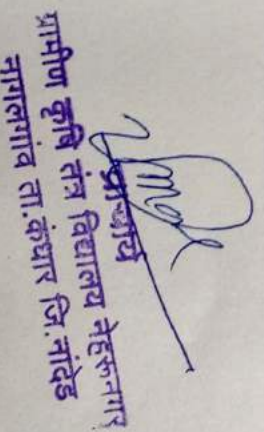 प्राचार्य
ग्रामीण कृषि तंत्र विद्यालय नेहरूनगर
नागलगांव ता.कंधार जि.नांदेड